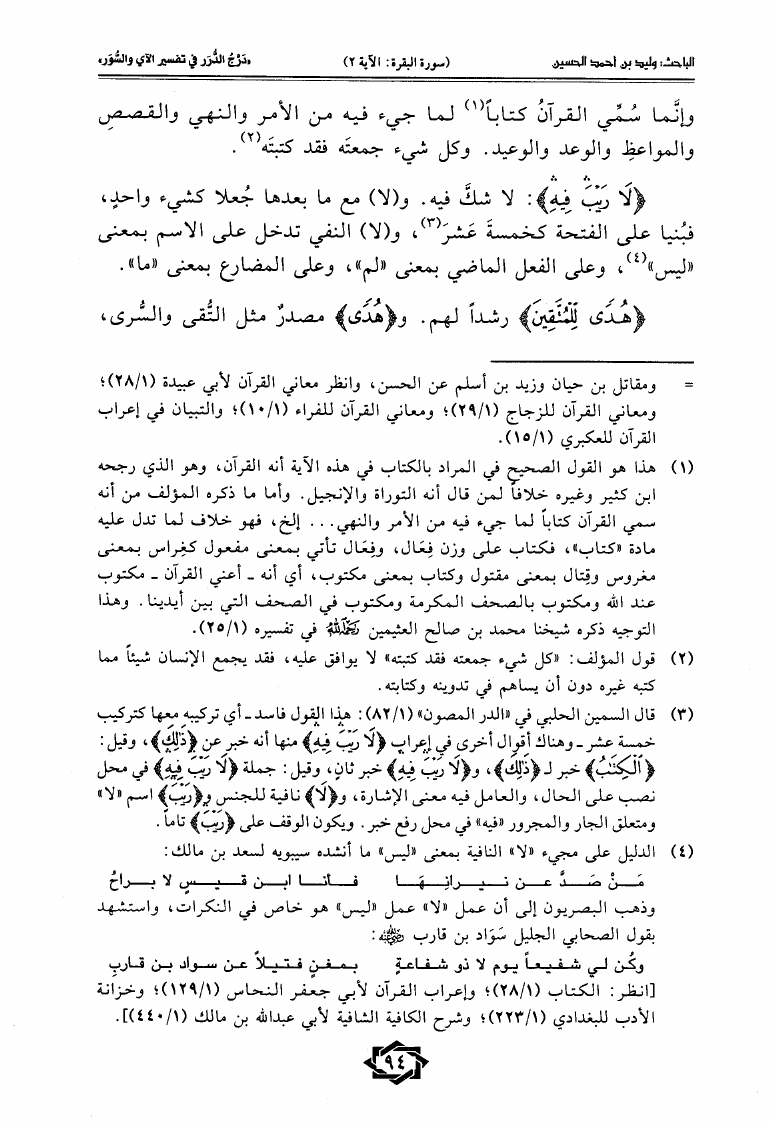 الباحث: وليد بن أحمد الحسين (سورة البقرة: الآية ٢) «دَرْجُ الدُّرَر في تفسير الآي والسُّوَر»
وإنَّما سُمِّي القرآنُ كتاباً(١) لما جيء فيه من الأمر والنهي والقصصِ
والمواعظِ والوعد والوعيد. وكل شيء جمعتَه فقد كتبتَه(٢).
﴿لَا رَيْبَ فِيهِ﴾: لا شكَّ فيه. و(لا) مع ما بعدها جُعلا كشيء واحدٍ،
فبُنيا على الفتحة كخمسةَ عَشرَ(٣)، و(لا) النفي تدخل على الاسم بمعنى
«ليس»(٤)، وعلى الفعل الماضي بمعنى «لم»، وعلى المضارع بمعنى «ما».
﴿هُدًى لِلْمُتَّقِينَ﴾ رشداً لهم. و﴿هُدًى﴾ مصدرٌ مثل التُّقى والسُّرى،
= ومقاتل بن حيان وزيد بن أسلم عن الحسن، وانظر معاني القرآن لأبي عبيدة (٢٨/١)؛
ومعاني القرآن للزجاج (٢٩/١)؛ ومعاني القرآن للفراء (١٠/١)؛ والتبيان في إعراب
القرآن للعكبري (١٥/١).
(١) هذا هو القول الصحيح في المراد بالكتاب في هذه الآية أنه القرآن، وهو الذي رجحه
ابن كثير وغيره خلافاً لمن قال أنه التوراة والإنجيل. وأما ما ذكره المؤلف من أنه
سمي القرآن كتاباً لما جيء فيه من الأمر والنهي... إلخ، فهو خلاف لما تدل عليه
مادة «كتاب»، فكتاب على وزن فِعَال، وفِعَال تأتي بمعنى مفعول كغِراس بمعنى
مغروس وقِتال بمعنى مقتول وكتاب بمعنى مكتوب، أي أنه ـ أعني القرآن ـ مكتوب
عند الله ومكتوب بالصحف المكرمة ومكتوب في الصحف التي بين أيدينا. وهذا
التوجيه ذكره شيخنا محمد بن صالح العثيمين رَحِمَهُ اللهُ في تفسيره (٢٥/١).
(٢) قول المؤلف: «كل شيء جمعته فقد كتبته» لا يوافق عليه، فقد يجمع الإنسان شيئاً مما
كتبه غيره دون أن يساهم في تدوينه وكتابته.
(٣) قال السمين الحلبي في «الدر المصون» (٨٢/١): هذا القول فاسد ـ أي تركيبه معها كتركيب
خمسة عشر ـ وهناك أقوال أخرى في إعراب ﴿لَا رَيْبَ فِيهِ﴾ منها أنه خبر عن ﴿ذَلِكَ﴾، وقيل:
﴿الْكِتَبُ﴾ خبر لـ ﴿ذَلِكَ﴾، و﴿لَا رَيْبَ فِيهِ﴾ خبر ثانٍ، وقيل: جملة ﴿لَا رَيْبَ فِيهِ﴾ في محل
نصب على الحال، والعامل فيه معنى الإشارة، و﴿لَا﴾ نافية للجنس و﴿رَيْبَ﴾ اسم «لا»
ومتعلق الجار والمجرور «فيه» في محل رفع خبر. ويكون الوقف على ﴿رَيْبَ﴾ تاماً.
(٤) الدليل على مجيء «لا» النافية بمعنى «ليس» ما أنشده سيبويه لسعد بن مالك:
مَنْ صَدَّ عن نيرانِهَا فأنا ابن قيسٍ لا براحُ
وذهب البصريون إلى أن عمل «لا» عمل «ليس» هو خاص في النكرات، واستشهد
بقول الصحابي الجليل سَوَاد بن قارب رضي الله عنه:
وكُن لي شفيعاً يوم لا ذو شفاعةٍ بمغنٍ فتيلاً عن سواد بن قاربِ
[انظر: الكتاب (٢٨/١)؛ وإعراب القرآن لأبي جعفر النحاس (١٢٩/١)؛ وخزانة
الأدب للبغدادي (٢٢٣/١)؛ وشرح الكافية الشافية لأبي عبدالله بن مالك (٤٤٠/١)].
٩٤